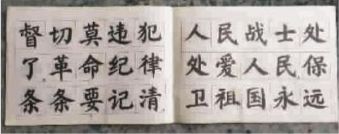 督切莫违犯
了革命纪律
条条要记清
人民战士处
处爱人民保
卫祖国永远